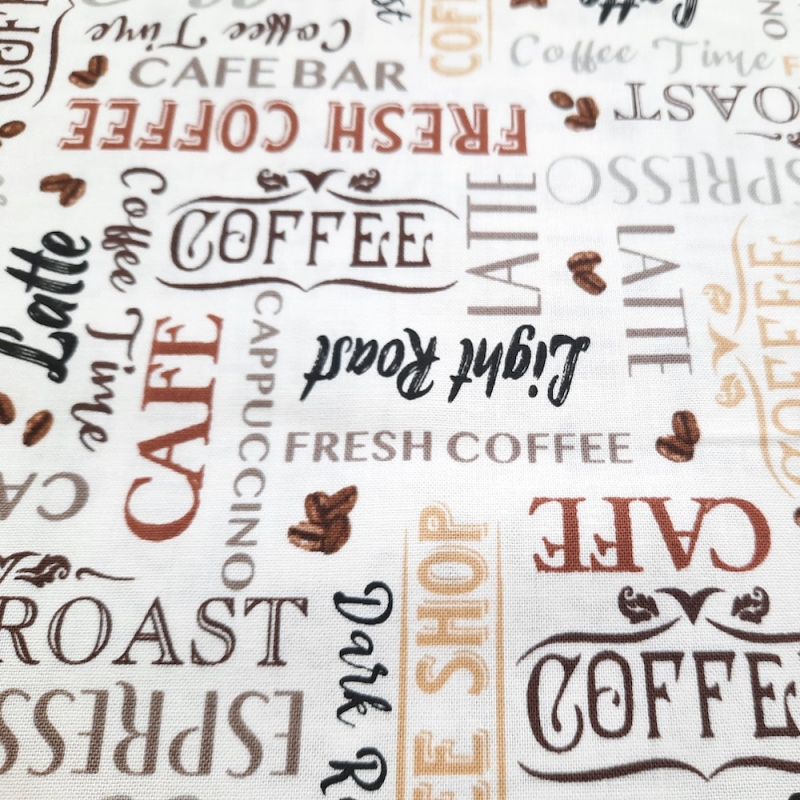 Coffee Time
Coffee Time
CAFE BAR
FRESH COFFEE
ROAST
ESPRESSO
Coffee Time
COFFEE
LATTE
LATTE
Latte
COFFEE
CAFE
CAPPUCCINO
Light Roast
FRESH COFFEE
CAFE
ROAST
Dark R
EE SHOP
COFFEE
ESPRESS